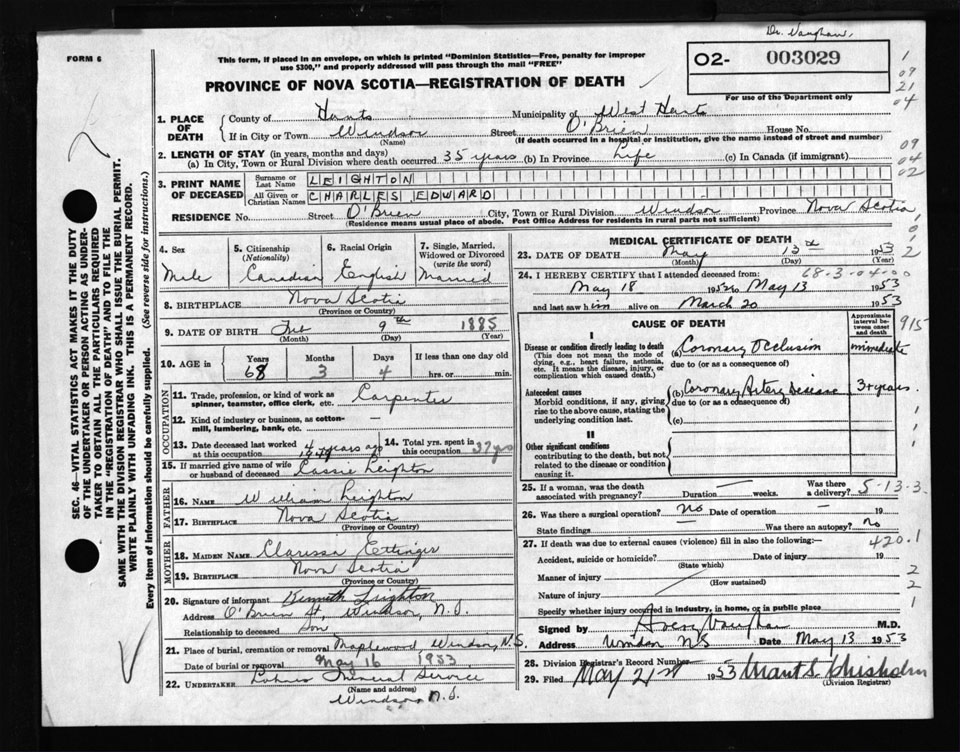 Dr. Vaughan
FORM 6
This form, if placed in an envelope, on which is printed "Dominion Statistics—Free, penalty for improper
use $300," and properly addressed will pass through the mail "FREE"
02- 003029
For use of the Department only
PROVINCE OF NOVA SCOTIA—REGISTRATION OF DEATH
1
09
21
04
1. PLACE OF DEATH
County of Hants Municipality of West Hants
If in City or Town Windsor Street O'Brien House No.
(Name) (If death occurred in a hospital or institution, give the name instead of street and number)
2. LENGTH OF STAY (in years, months and days)
(a) In City, Town or Rural Division where death occurred 35 years (b) In Province Life (c) In Canada (if immigrant)
09
04
02
3. PRINT NAME OF DECEASED
Surname or Last Name LEIGHTON
All Given or Christian Names CHARLES EDWARD
RESIDENCE No. Street O'Brien City, Town or Rural Division Windsor Province Nova Scotia
(Residence means usual place of abode. Post Office Address for residents in rural parts not sufficient)
4. Sex Male
5. Citizenship (Nationality) Canadian
6. Racial Origin English
7. Single, Married, Widowed or Divorced (write the word) Married
8. BIRTHPLACE Nova Scotia
(Province or Country)
9. DATE OF BIRTH Feb 9th 1885
(Month) (Day) (Year)
10. AGE in Years 68 Months 3 Days 4 If less than one day old
hrs. or min.
OCCUPATION
11. Trade, profession, or kind of work as spinner, teamster, office clerk, etc. Carpenter
12. Kind of industry or business, as cotton-mill, lumbering, bank, etc. —
13. Date deceased last worked at this occupation 4 years ago
14. Total yrs. spent in this occupation 37 yrs
15. If married give name of wife or husband of deceased Cassie Leighton
FATHER
16. NAME William Leighton
17. BIRTHPLACE Nova Scotia
(Province or Country)
MOTHER
18. MAIDEN NAME Clarissa Ettinger
19. BIRTHPLACE Nova Scotia
(Province or Country)
20. Signature of informant Kenneth Leighton
Address O'Brien St, Windsor, N.S.
Relationship to deceased Son
21. Place of burial, cremation or removal Maplewood, Windsor, N.S.
Date of burial or removal May 16 1953
22. UNDERTAKER Funeral Service
(Name and address)
Windsor N.S.
MEDICAL CERTIFICATE OF DEATH
23. DATE OF DEATH May 13th 1953
(Month) (Day) (Year)
68-3-04-00
24. I HEREBY CERTIFY that I attended deceased from:
May 18 1952 to May 13 1953
and last saw him alive on March 20 1953
CAUSE OF DEATH
Approximate interval between onset and death
915
I
Disease or condition directly leading to death (a) Coronary Occlusion immediate
(This does not mean the mode of dying, e.g., heart failure, asthenia, etc. It means the disease, injury, or complication which caused death.)
due to (or as a consequence of)
Antecedent causes (b) Coronary Artery Disease 3 years.
Morbid conditions, if any, giving rise to the above cause, stating the underlying condition last.
due to (or as a consequence of)
(c)
II
Other significant conditions
contributing to the death, but not related to the disease or condition causing it.
25. If a woman, was the death associated with pregnancy? Duration weeks. Was there a delivery?
5-13-3
26. Was there a surgical operation? No Date of operation — 19
State findings — Was there an autopsy? no
27. If death was due to external causes (violence) fill in also the following:—
420.1
Accident, suicide or homicide? Date of injury 19
(State which)
Manner of injury
(How sustained)
Nature of injury
Specify whether injury occurred in industry, in home, or in public place
2
2
1
Signed by Vaughan M.D.
Address Windsor NS Date May 13 1953
28. Division Registrar's Record Number
29. Filed May 21st 1953 Grant S. Chisholm
(Division Registrar)
SEC. 46—VITAL STATISTICS ACT MAKES IT THE DUTY
OF THE UNDERTAKER OR PERSON ACTING AS UNDER-
TAKER TO OBTAIN ALL THE PARTICULARS REQUIRED
IN THE "REGISTRATION OF DEATH" AND TO FILE THE
SAME WITH THE DIVISION REGISTRAR WHO SHALL ISSUE THE BURIAL PERMIT.
WRITE PLAINLY WITH UNFADING INK. THIS IS A PERMANENT RECORD.
Every item of information should be carefully supplied. (See reverse side for instructions.)